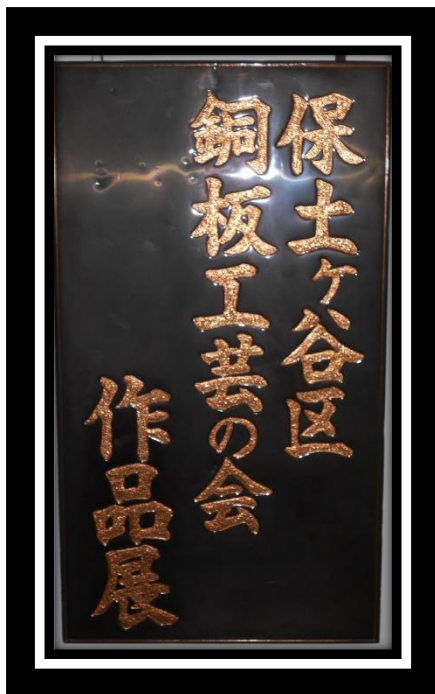 保土ケ谷区
銅板工芸の会
作品展